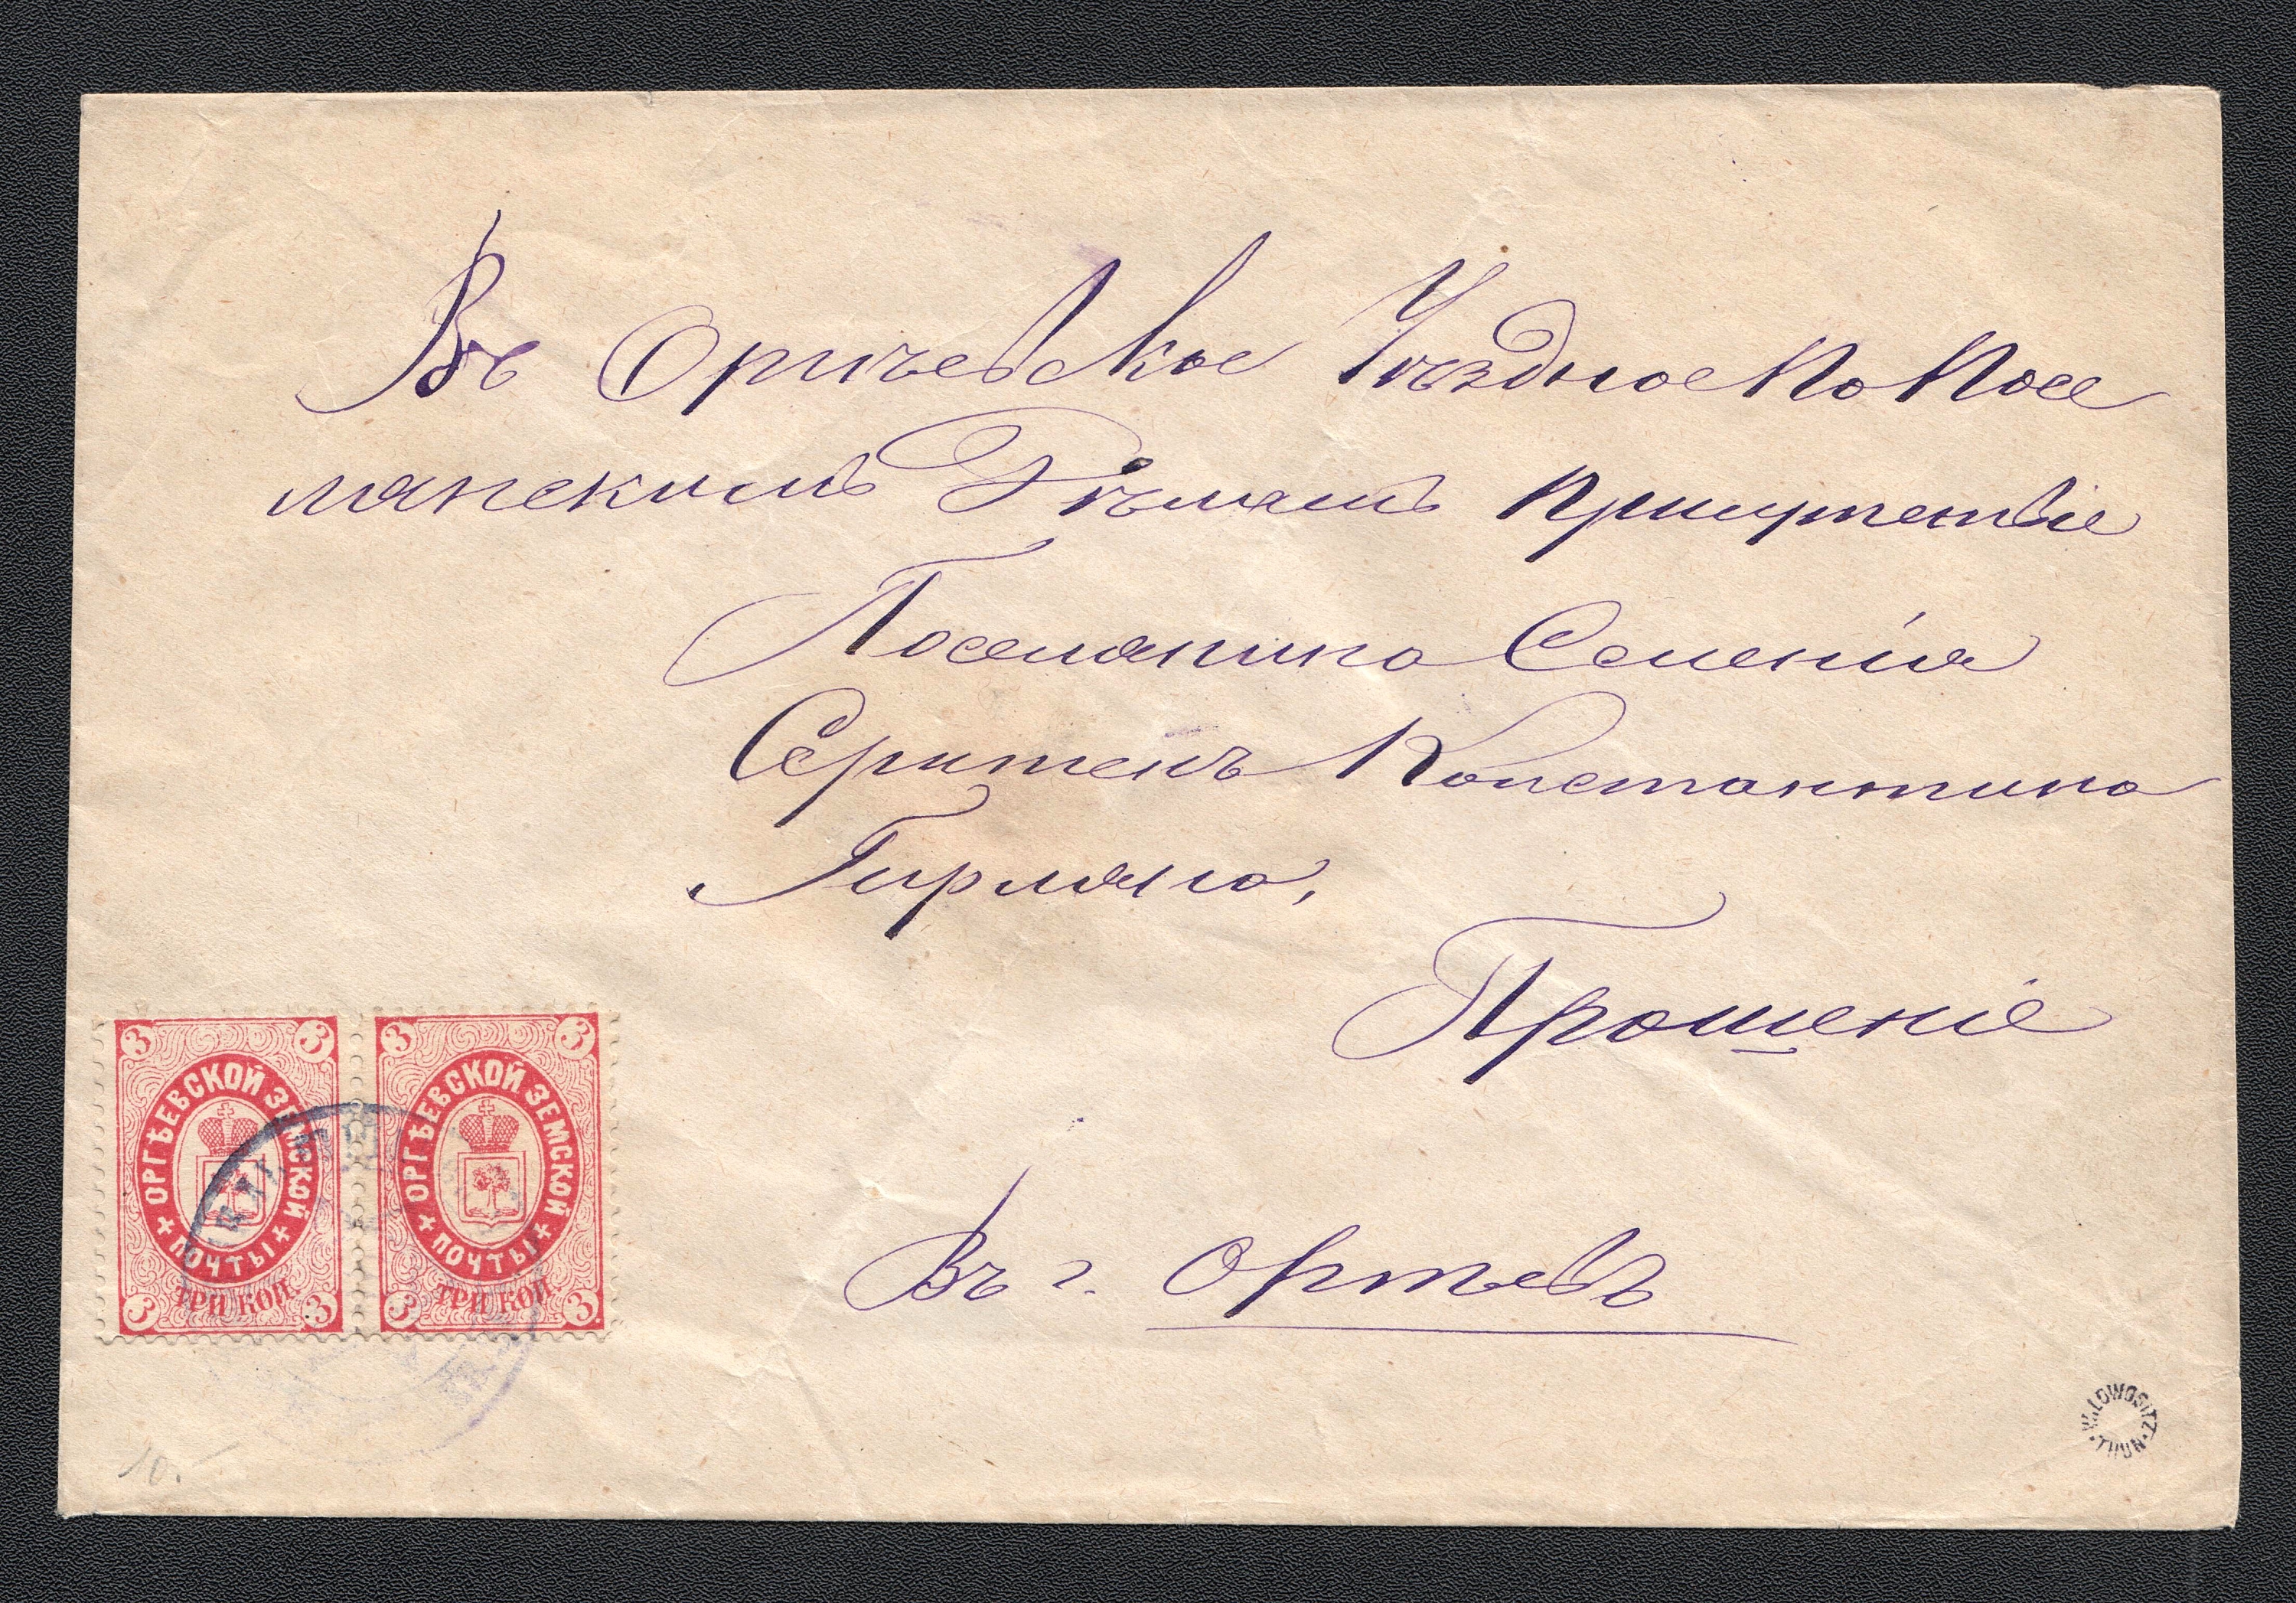 Въ Оргѣевское Уѣздное по Посе
лянскимъ Дѣламъ Присутствіе
Поселянина Селенія
Константина
Гирляна,
Прошеніе
Въ г. Оргѣевъ
3 3
ОРГѢЕВСКОЙ ЗЕМСКОЙ
ПОЧТЫ
ТРИ КОП.
3 3
3 3
ОРГѢЕВСКОЙ ЗЕМСКОЙ
ПОЧТЫ
ТРИ КОП.
3 3
10.-
LOWOSITZ
THUN